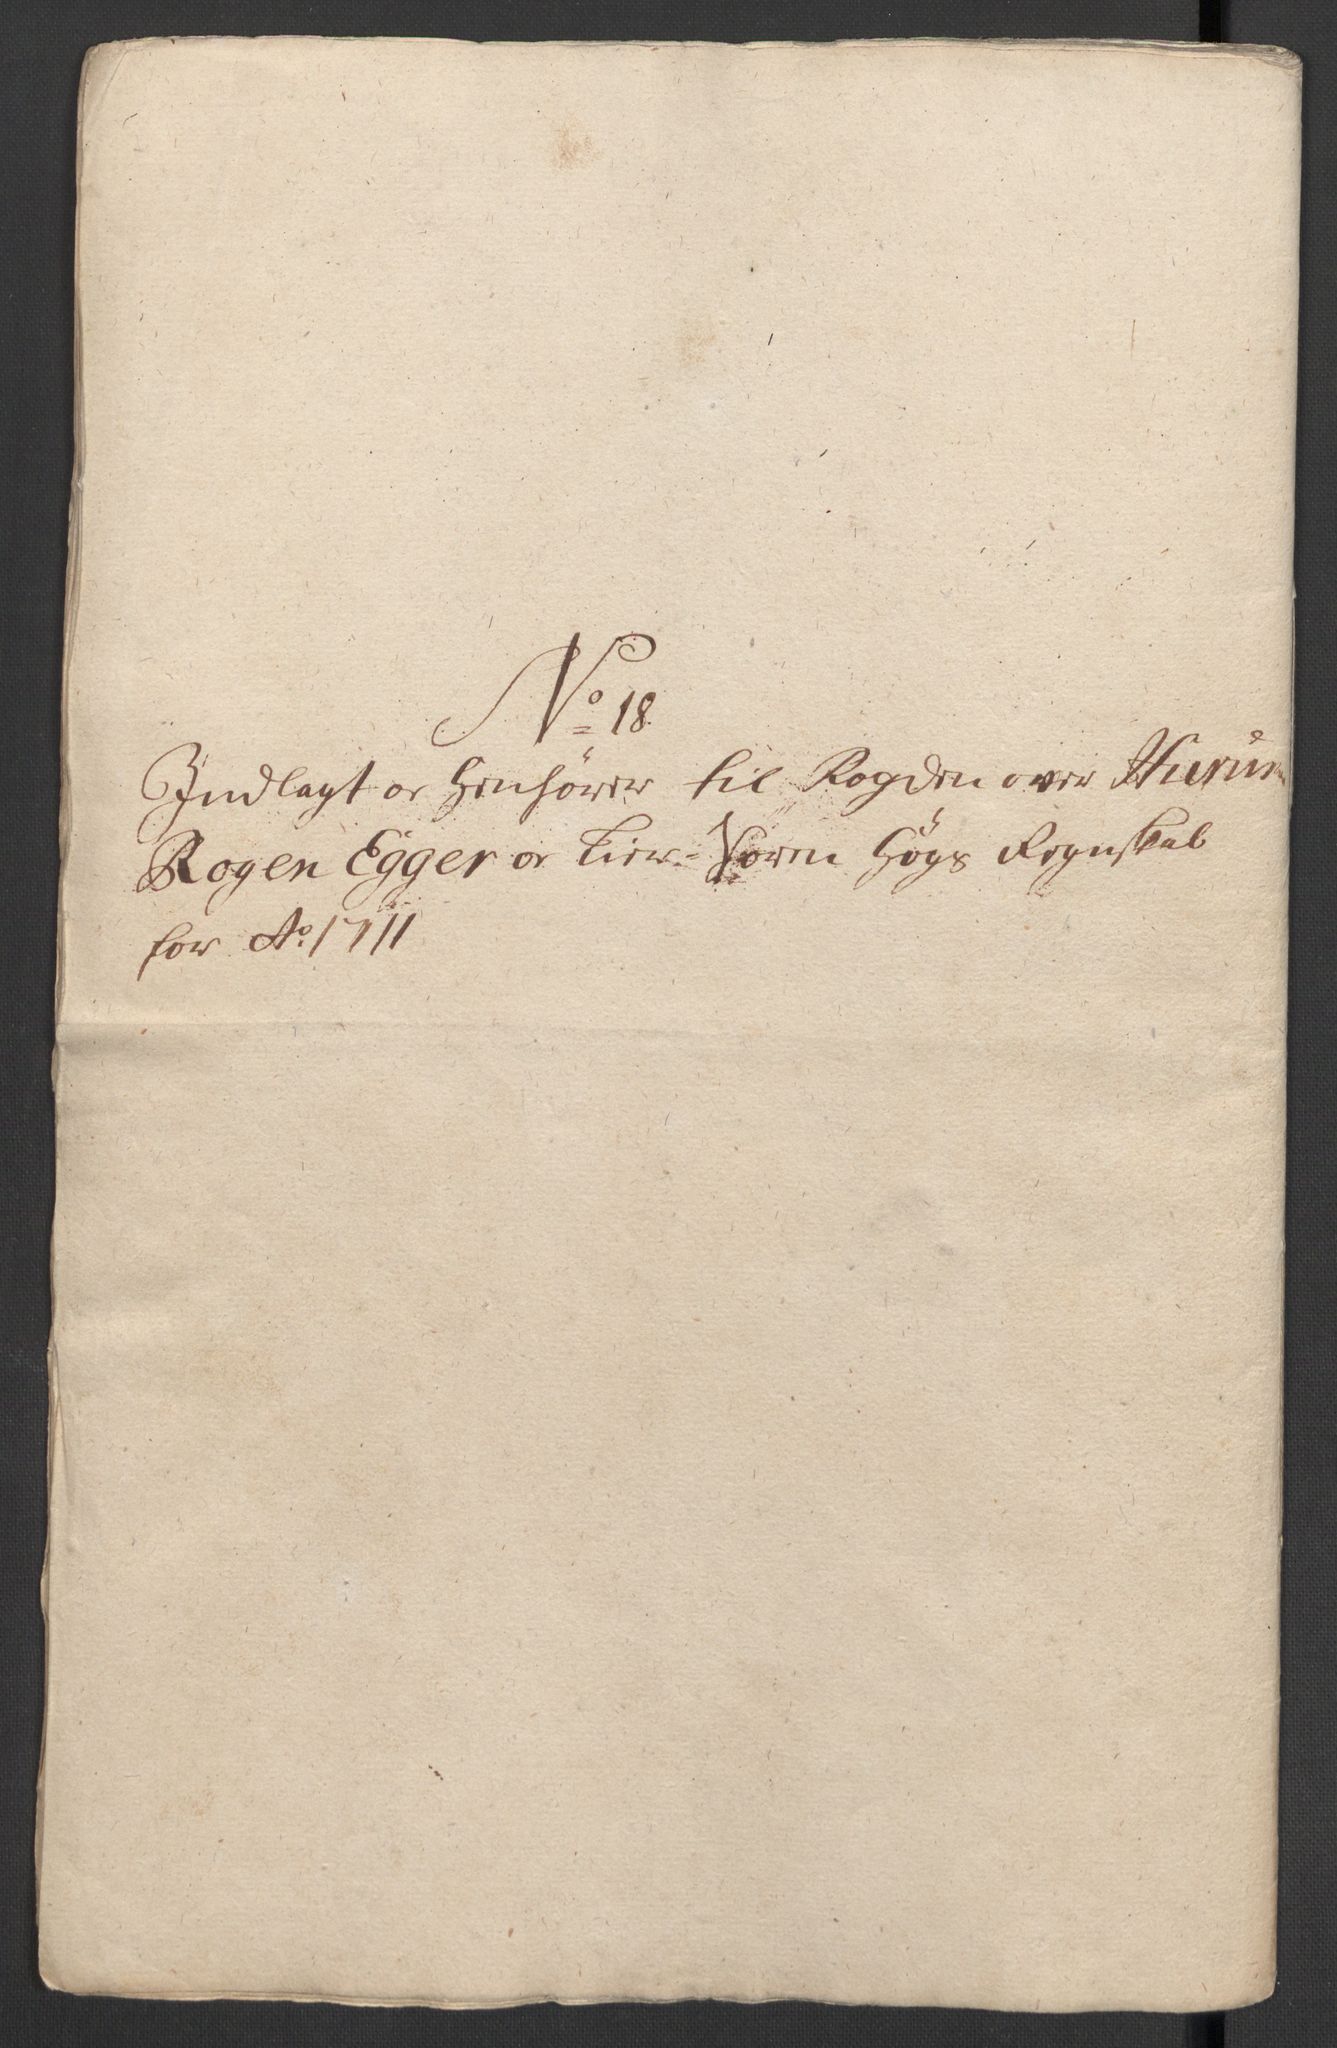 No 18
Indlagt or henhörer til Fogden over Hurum
Rogen Egger or Lier Sören Högs Regnskab
for Ao 1711